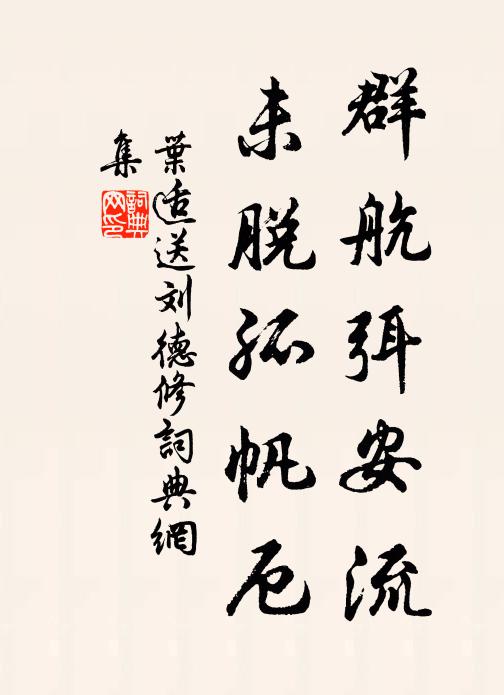 群航弭安流
未脱孤帆厄
葉适送刘德修詞典網
集
詞典
网印